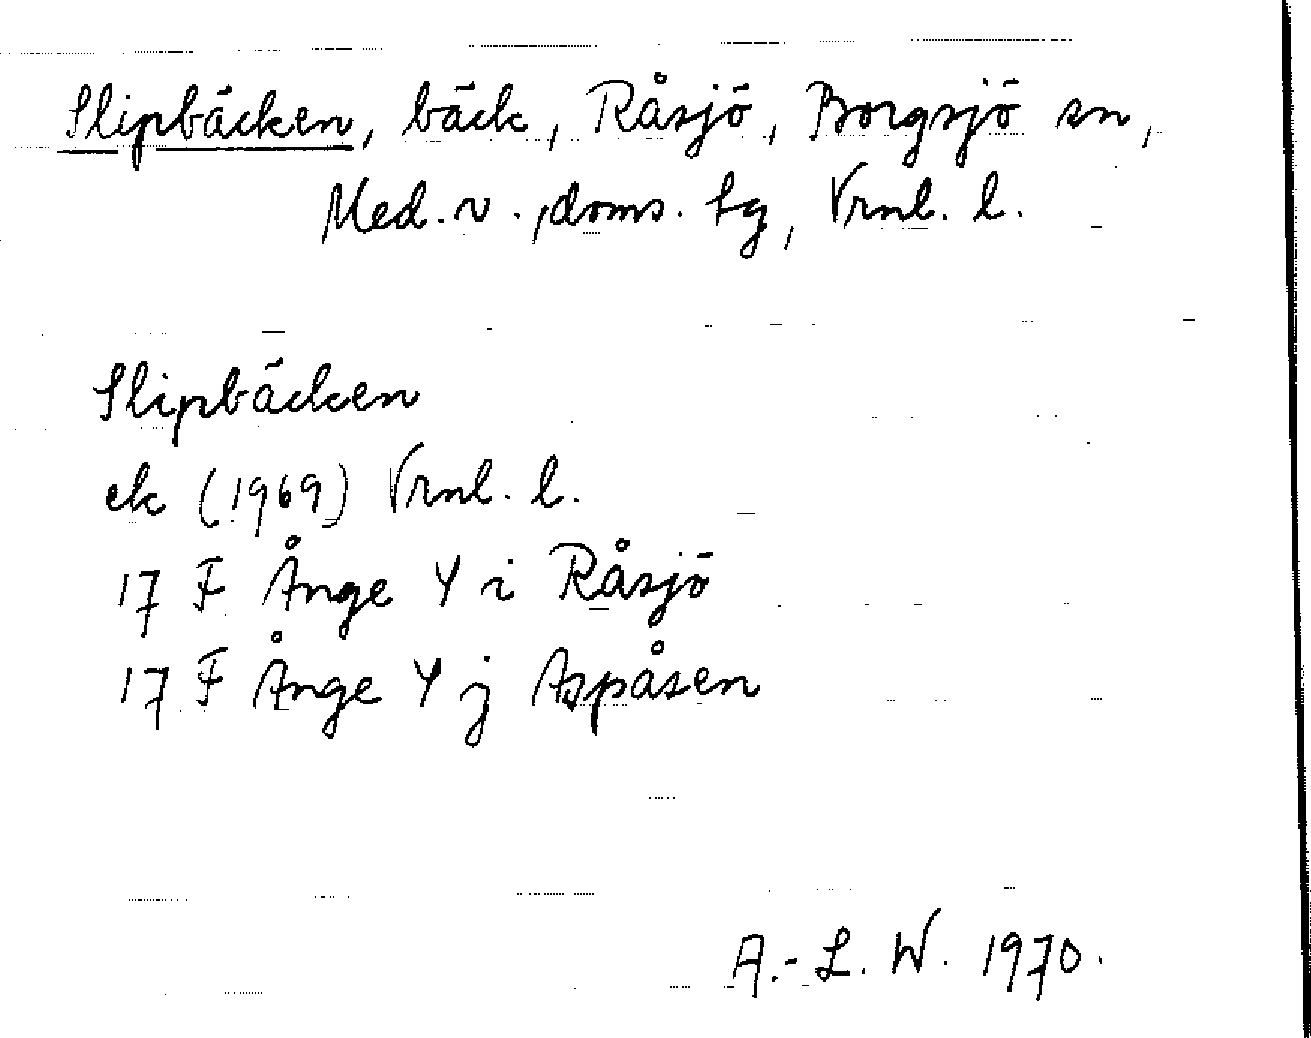 Slipbäcken, bäck, Råsjö, Borgsjö sn,
Med. v. doms. tg, Vrnl. l.
Slipbäcken
ek (1969) Vrnl. l.
17 F Ånge Y i Råsjö
17 F Ånge Y j Aspåsen
A.-L. W. 1970.